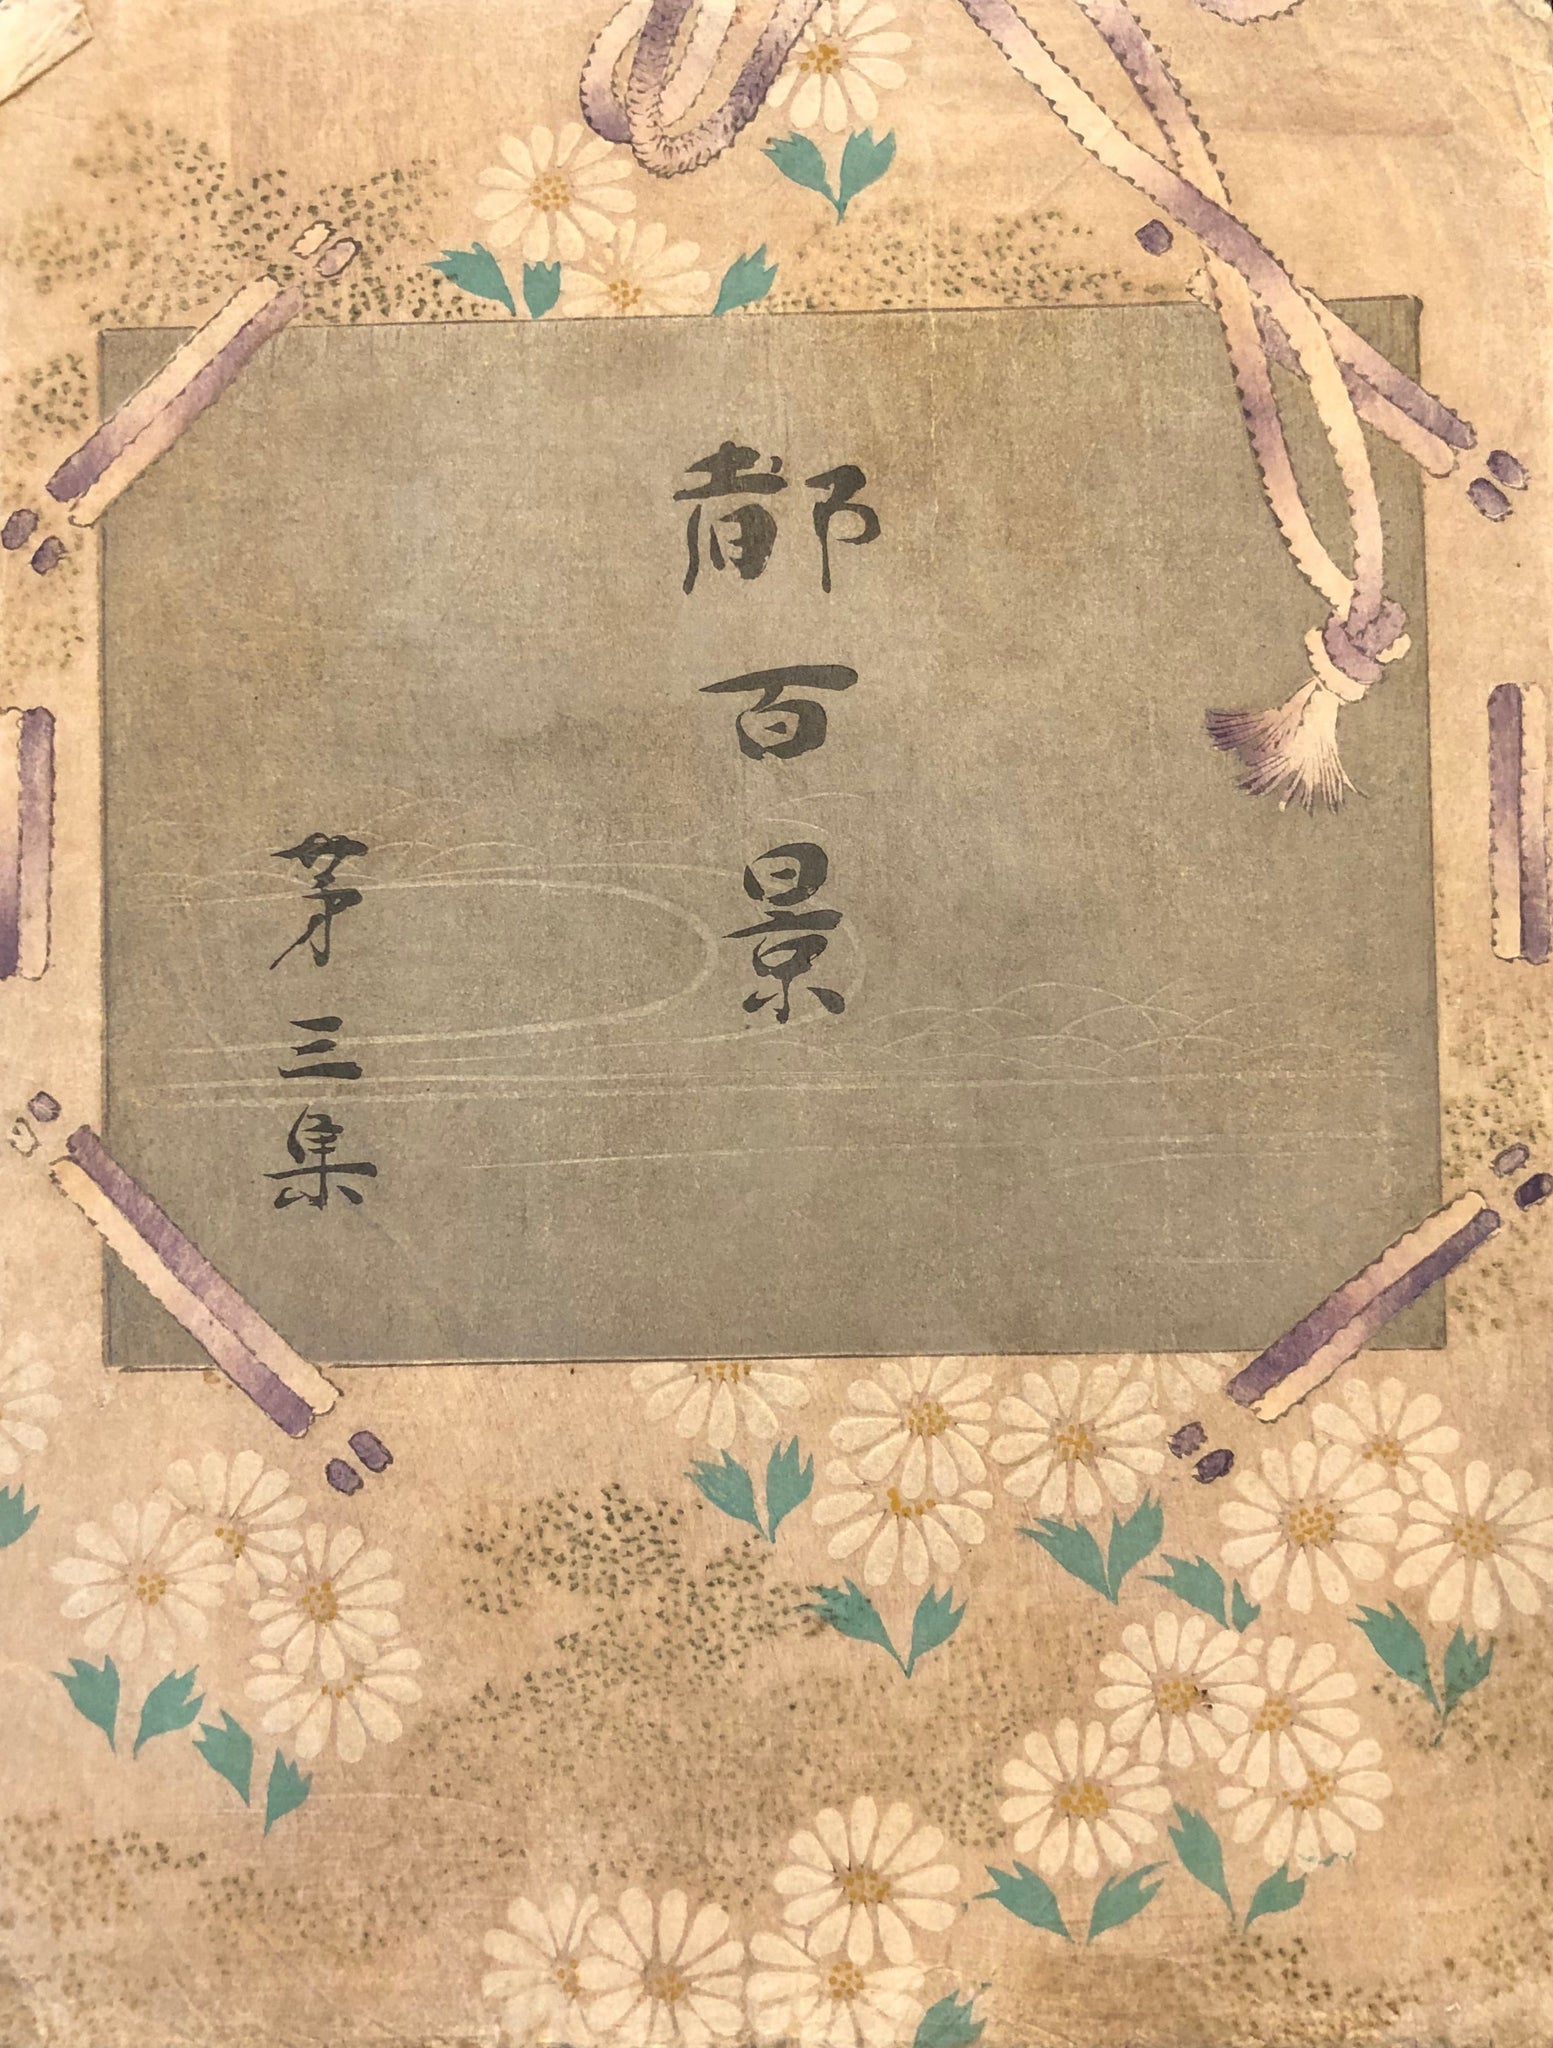 都百景
第三集